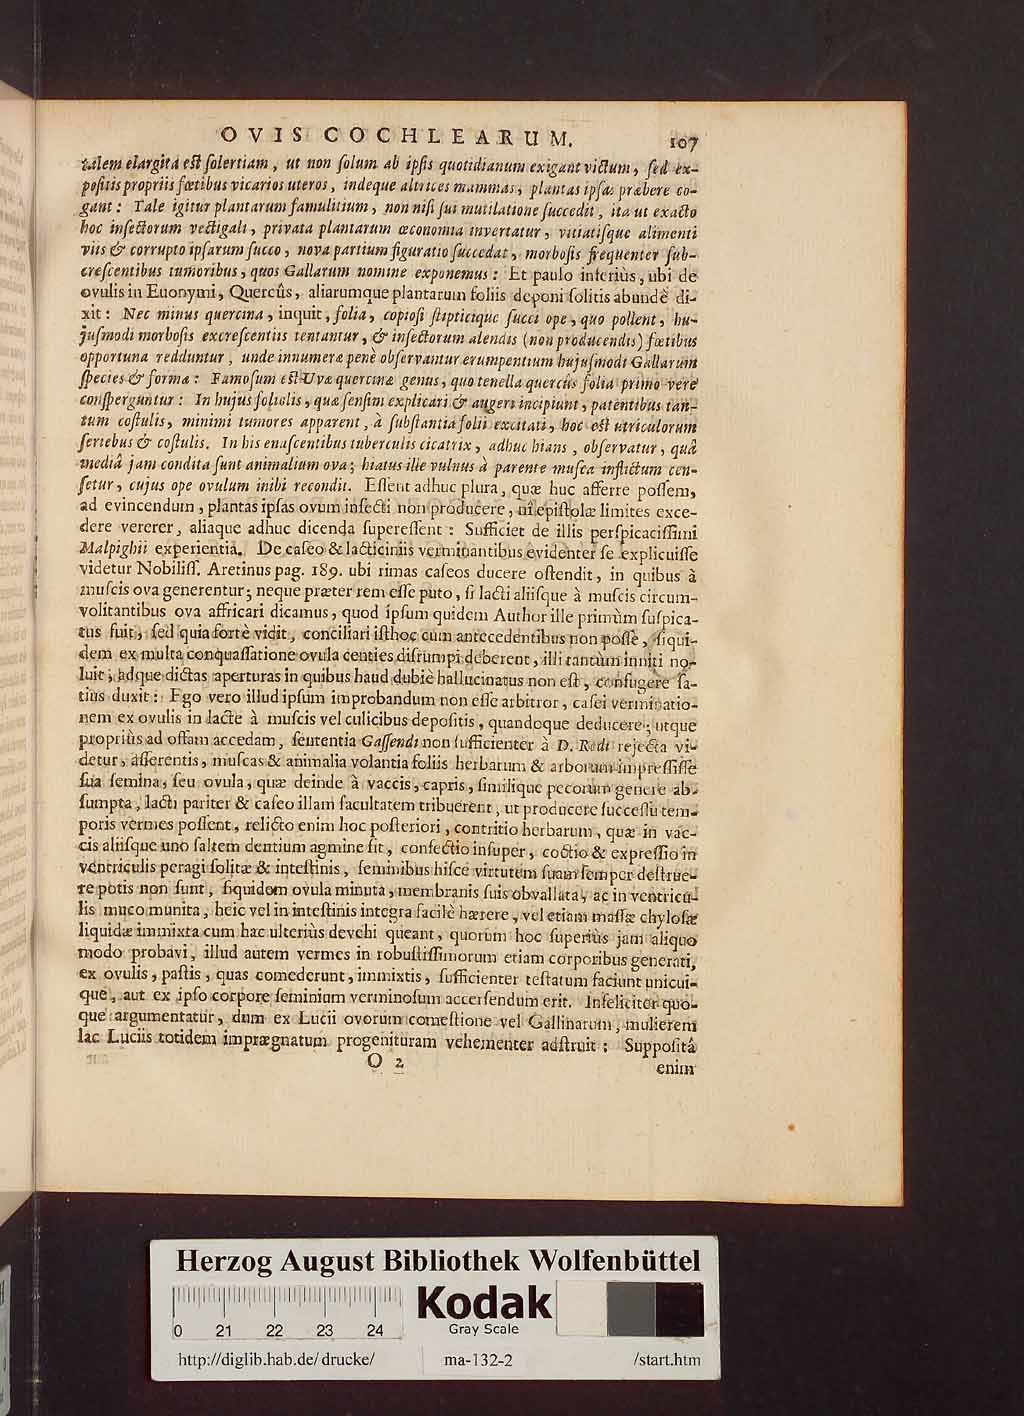 OVIS COCHLEARUM. 107
talem elargita est ſolertiam, ut non ſolum ab ipſis quotidianum exigant victum, ſed ex-
poſitis propriis fœtibus vicarios uteros, indeque altrices mammas, plantas ipſas præbere co-
gant: Tale igitur plantarum famulitium, non niſi ſui mutilatione ſuccedit, ita ut exacto
hoc inſectorum vectigali, privata plantarum œconomia invertatur, vitiatiſque alimenti
viis & corrupto ipſarum ſucco, nova partium figuratio ſuccedat, morboſis frequenter ſub-
creſcentibus tumoribus, quos Gallarum nomine exponemus: Et paulo inferiùs, ubi de
ovulis in Euonymi, Quercûs, aliarumque plantarum foliis deponi ſolitis abundè di-
xit: Nec minus quercina, inquit, folia, copioſi ſtipticique ſucci ope, quo pollent, hu-
juſmodi morboſis excreſcentiis tentantur, & inſectorum alendis (non producendis) fœtibus
opportuna redduntur, unde innumeræ penè obſervantur erumpentium hujuſmodi Gallarum
ſpecies & formæ: Famoſum est Uvæ quercinæ genus, quo tenella quercûs folia primo vere
conſperguntur: In hujus foliolis, quæ ſenſim explicari & augeri incipiunt, patentibus tan-
tum coſtulis, minimi tumores apparent, à ſubſtantia folii excitati, hoc est utriculorum
ſeriebus & coſtulis. In his enaſcentibus tuberculis cicatrix, adhuc hians, obſervatur, quâ
mediâ jam condita ſunt animalium ova; hiatus ille vulnus à parente muſca inflictum cen-
ſetur, cujus ope ovulum inibi recondit. Eſſent adhuc plura, quæ huc afferre poſſem,
ad evincendum, plantas ipſas ovum inſecti non producere, nî epiſtolæ limites exce-
dere vererer, aliaque adhuc dicenda ſupereſſent: Sufficiet de illis perſpicaciſſimi
Malpighii experientia. De caſeo & lacticiniis verminantibus evidenter ſe explicuiſſe
videtur Nobiliſſ. Aretinus pag. 189. ubi rimas caſeos ducere oſtendit, in quibus à
muſcis ova generentur; neque præter rem eſſe puto, ſi lacti aliiſque à muſcis circum-
volitantibus ova affricari dicamus, quod ipſum quidem Author ille primùm ſuſpica-
tus fuit, ſed quia fortè vidit, conciliari iſthoc cum antecedentibus non poſſe, ſiqui-
dem ex multa conquaſſatione ovula centies diſrumpi deberent, illi tantùm inniti no-
luit; adque dictas aperturas in quibus haud dubiè hallucinatus non eſt, confugere ſa-
tiùs duxit: Ego vero illud ipſum improbandum non eſſe arbitror, caſei verminatio-
nem ex ovulis in lacte à muſcis vel culicibus depoſitis, quandoque deducere; utque
propriùs ad offam accedam, ſententia Gaſſendi non ſufficienter à D. Redi rejecta vi-
detur, aſſerentis, muſcas & animalia volantia foliis herbarum & arborum impreſſiſſe
ſua ſemina, ſeu ovula, quæ deinde à vaccis, capris, ſimilique pecorum genere ab-
ſumpta, lacti pariter & caſeo illam facultatem tribuerent, ut producere ſucceſſu tem-
poris vermes poſſent, relicto enim hoc poſteriori, contritio herbarum, quæ in vac-
cis aliiſque uno ſaltem dentium agmine fit, confectio inſuper, coctio & expreſſio in
ventriculis peragi ſolitæ & inteſtinis, ſeminibus hiſce virtutem ſuam ſemper deſtrue-
re potis non ſunt, ſiquidem ovula minuta, membranis ſuis obvallata, ac in ventricu-
lis muco munita, heic vel in inteſtinis integra facilè hærere, vel etiam maſſæ chyloſæ
liquidæ immixta cum hac ulteriùs devehi queant, quorum hoc ſuperiùs jam aliquo
modo probavi, illud autem vermes in robuſtiſſimorum etiam corporibus generati,
ex ovulis, paſtis, quas comederunt, immixtis, ſufficienter teſtatum faciunt unicui-
que, aut ex ipſo corpore ſeminium verminoſum accerſendum erit. Infeliciter quo-
que argumentatur, dum ex Lucii ovorum comeſtione vel Gallinarum, mulierem
lac Luciis totidem imprægnatum progenituram vehementer adſtruit; Suppoſitâ
O 2 enim
Herzog August Bibliothek Wolfenbüttel
Kodak
Gray Scale
0 21 22 23 24
http://diglib.hab.de/drucke/ ma-132-2 /start.htm